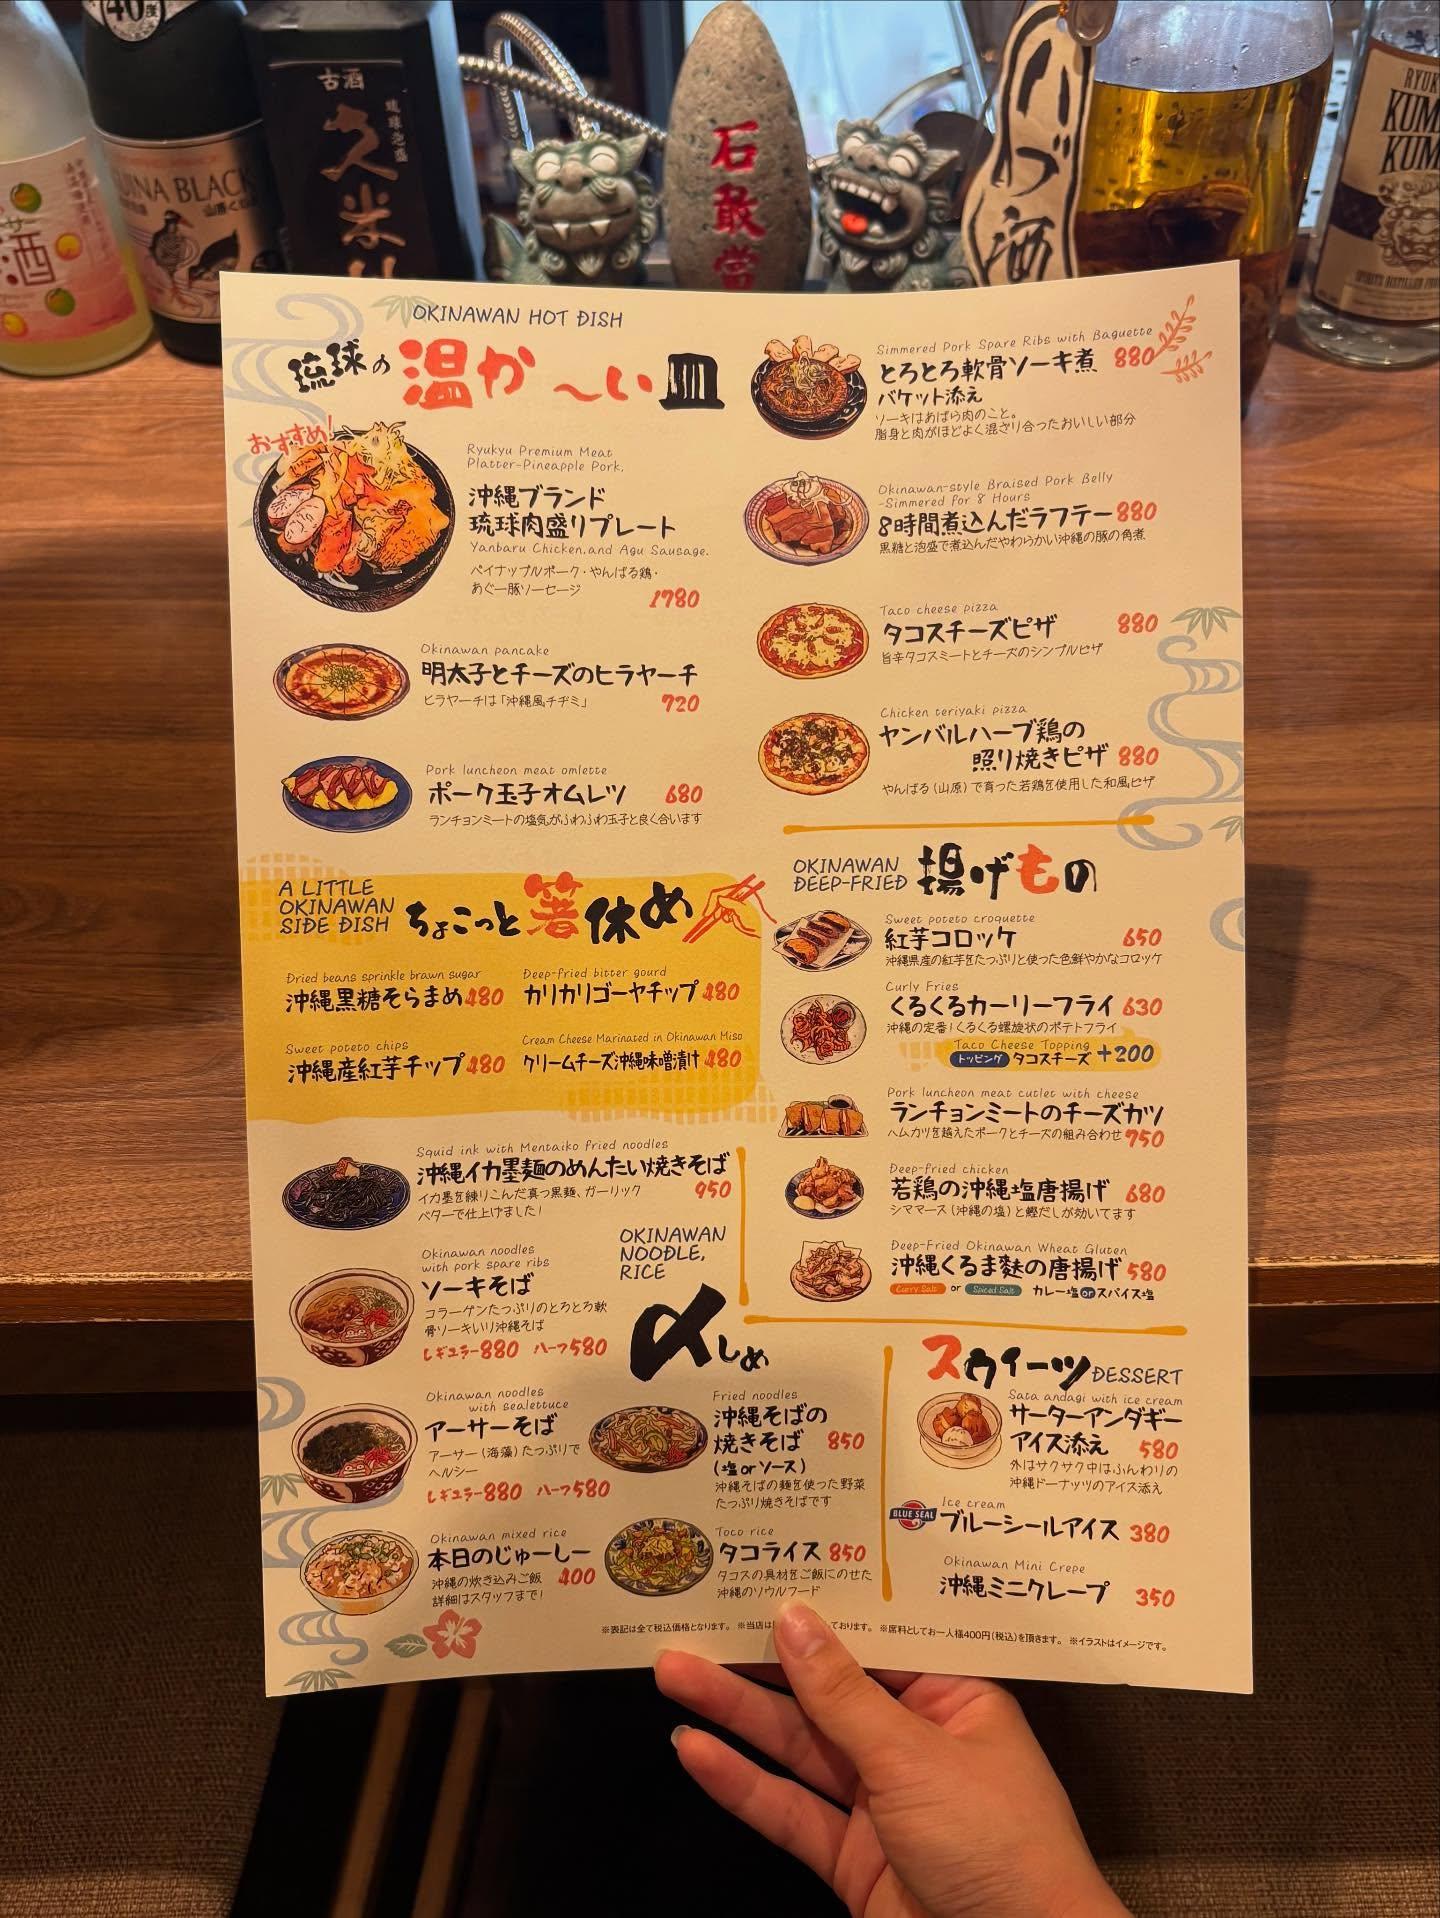 40度
酒
UINA BLACK
山原くいな
古酒
琉球泡盛
久米
石敢當
ハブ酒
RYUK
KUM
KUM
OKINAWAN HOT DISH
琉球の温か〜い皿
おすすめ!
Ryukyu Premium Meat
Platter-Pineapple Pork,
沖縄ブランド
琉球肉盛りプレート
Yanbaru Chicken,and Agu Sausage.
パイナップルポーク・やんばる鶏・
あぐー豚ソーセージ
1780
Okinawan pancake
明太子とチーズのヒラヤーチ
ヒラヤーチは「沖縄風チヂミ」
720
Pork luncheon meat omlette
ポーク玉子オムレツ 680
ランチョンミートの塩気がふわふわ玉子と良く合います
Simmered Pork Spare Ribs with Baguette
とろとろ軟骨ソーキ煮 880
バケット添え
ソーキはあばら肉のこと。
脂身と肉がほどよく混ざり合ったおいしい部分
Okinawan-style Braised Pork Belly
-Simmered for 8 Hours
8時間煮込んだラフテー 880
黒糖と泡盛で煮込んだやわらかい沖縄の豚の角煮
Taco cheese pizza
タコスチーズピザ 880
旨辛タコスミートとチーズのシンプルピザ
Chicken teriyaki pizza
ヤンバルハーブ鶏の
照り焼きピザ 880
やんばる(山原)で育った若鶏を使用した和風ピザ
A LITTLE
OKINAWAN
SIDE DISH
ちょこっと箸休め
Dried beans sprinkle brawn sugar
沖縄黒糖そらまめ 480
Deep-fried bitter gourd
カリカリゴーヤチップ 480
Sweet poteto chips
沖縄産紅芋チップ 480
Cream Cheese Marinated in Okinawan Miso
クリームチーズ沖縄味噌漬け 480
OKINAWAN
DEEP-FRIED
揚げもの
Sweet poteto croquette
紅芋コロッケ 650
沖縄県産の紅芋をたっぷりと使った色鮮やかなコロッケ
Curly Fries
くるくるカーリーフライ 630
沖縄の定番!くるくる螺旋状のポテトフライ
Taco Cheese Topping
トッピング タコスチーズ +200
Pork luncheon meat cutlet with cheese
ランチョンミートのチーズカツ
ハムカツを越えたポークとチーズの組み合わせ 750
Deep-fried chicken
若鶏の沖縄塩唐揚げ 680
シママース(沖縄の塩)と鰹だしが効いてます
Deep-Fried Okinawan Wheat Gluten
沖縄くるま麩の唐揚げ 580
Curry Salt or Spiced Salt カレー塩orスパイス塩
Squid ink with Mentaiko fried noodles
沖縄イカ墨麺のめんたい焼きそば
イカ墨を練りこんだ真っ黒麺、ガーリック
バターで仕上げました!
950
OKINAWAN
NOODLE,
RICE
〆しめ
Okinawan noodles
with pork spare ribs
ソーキそば
コラーゲンたっぷりのとろとろ軟
骨ソーキいり沖縄そば
レギュラー880 ハーフ580
Okinawan noodles
with sealettuce
アーサーそば
アーサー(海藻)たっぷりで
ヘルシー
レギュラー880 ハーフ580
Okinawan mixed rice
本日のじゅーしー
沖縄の炊き込みご飯
詳細はスタッフまで!
400
Fried noodles
沖縄そばの
焼きそば 850
(塩orソース)
沖縄そばの麺を使った野菜
たっぷり焼きそばです
Toco rice
タコライス 850
タコスの具材をご飯にのせた
沖縄のソウルフード
スウィーツ DESSERT
Sata andagi with ice cream
サーターアンダギー
アイス添え 580
外はサクサク中はふんわりの
沖縄ドーナッツのアイス添え
BLUE SEAL
Ice cream
ブルーシールアイス 380
Okinawan Mini Crepe
沖縄ミニクレープ 350
※表記は全て税込価格となります。 ※当店は ております。 ※席料としてお一人様400円(税込)を頂きます。 ※イラストはイメージです。